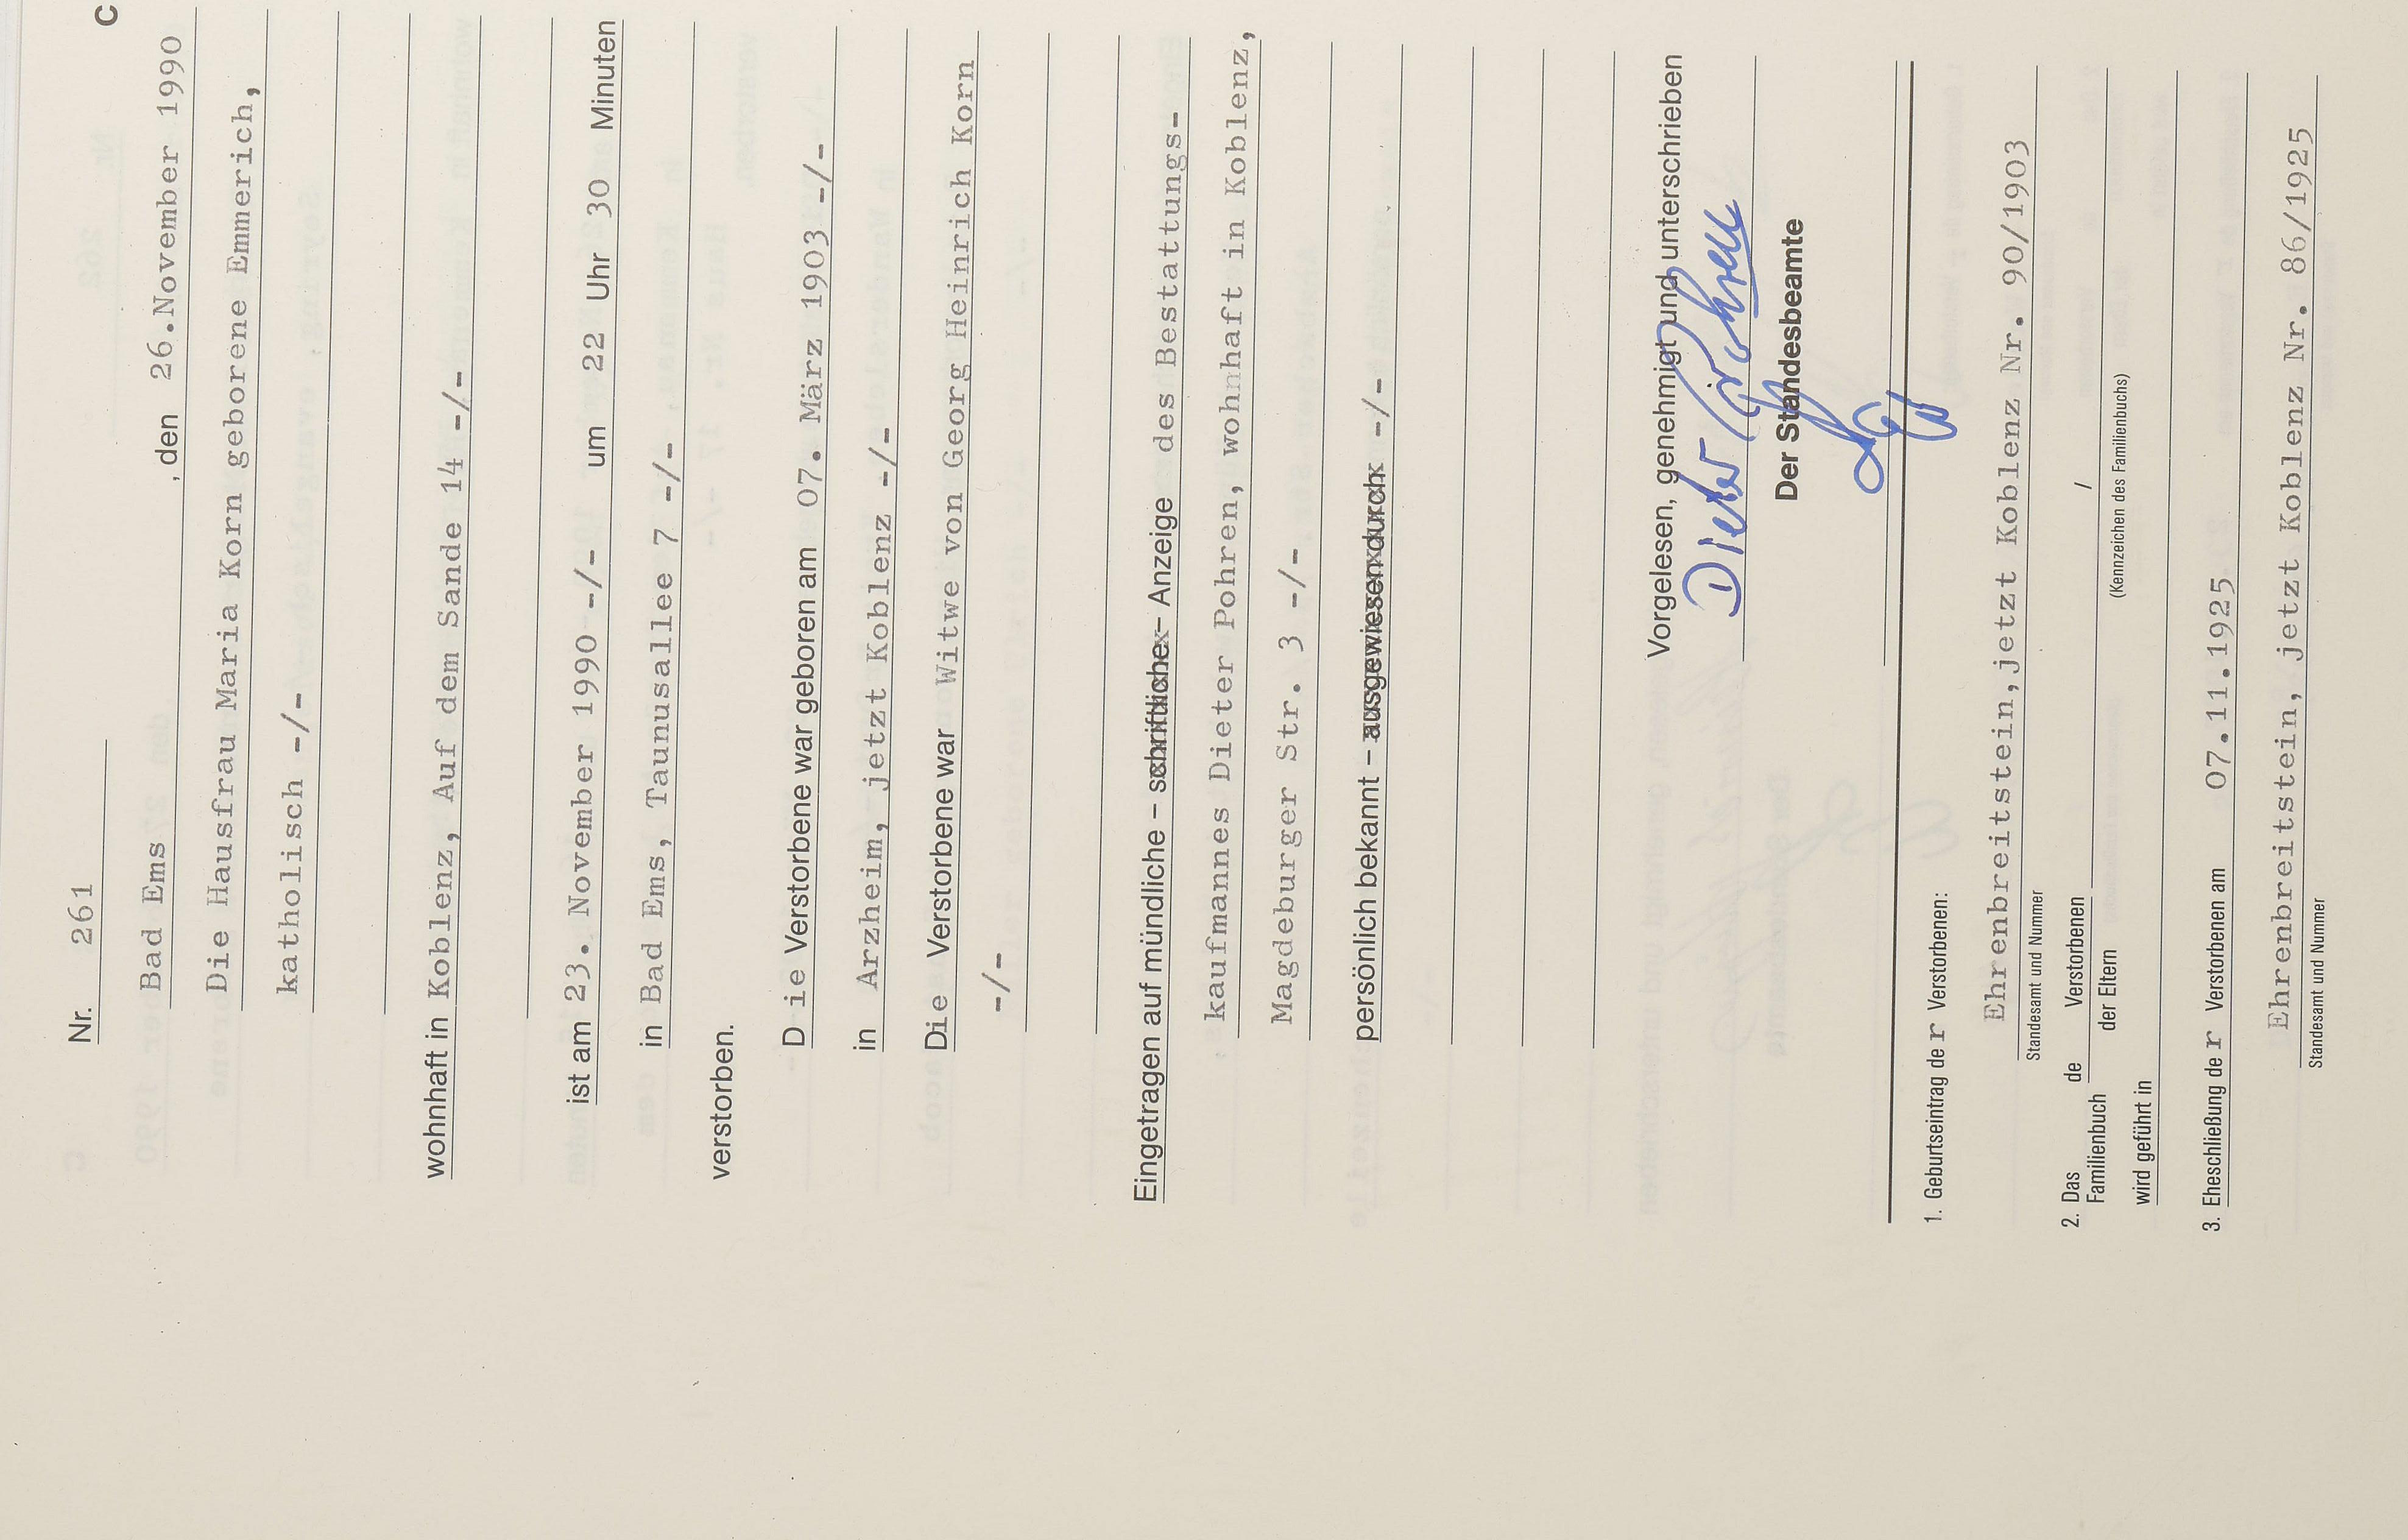 C
Nr. 261
Bad Ems , den 26.November 1990
Die Hausfrau Maria Korn geborene Emmerich,
katholisch -/-
wohnhaft in Koblenz, Auf dem Sande 14 -/-
ist am 23. November 1990 -/- um 22 Uhr 30 Minuten
in Bad Ems, Taunusallee 7 -/-
verstorben.
D ie Verstorbene war geboren am 07. März 1903 -/-
in Arzheim, jetzt Koblenz -/-
Die Verstorbene war Witwe von Georg Heinrich Korn
-/-
Eingetragen auf mündliche – schriftliche – Anzeige des Bestattungs-
kaufmannes Dieter Pohren, wohnhaft in Koblenz,
Magdeburger Str. 3 -/-
persönlich bekannt – ausgewiesen durch -/-
Vorgelesen, genehmigt und unterschrieben
Dieter Pohren
Der Standesbeamte
1. Geburtseintrag de r Verstorbenen:
Ehrenbreitstein,jetzt Koblenz Nr. 90/1903
Standesamt und Nummer
2. Das Familienbuch de Verstorbenen /
der Eltern (Kennzeichen des Familienbuchs)
wird geführt in
3. Eheschließung de r Verstorbenen am 07.11.1925
Ehrenbreitstein, jetzt Koblenz Nr. 86/1925
Standesamt und Nummer